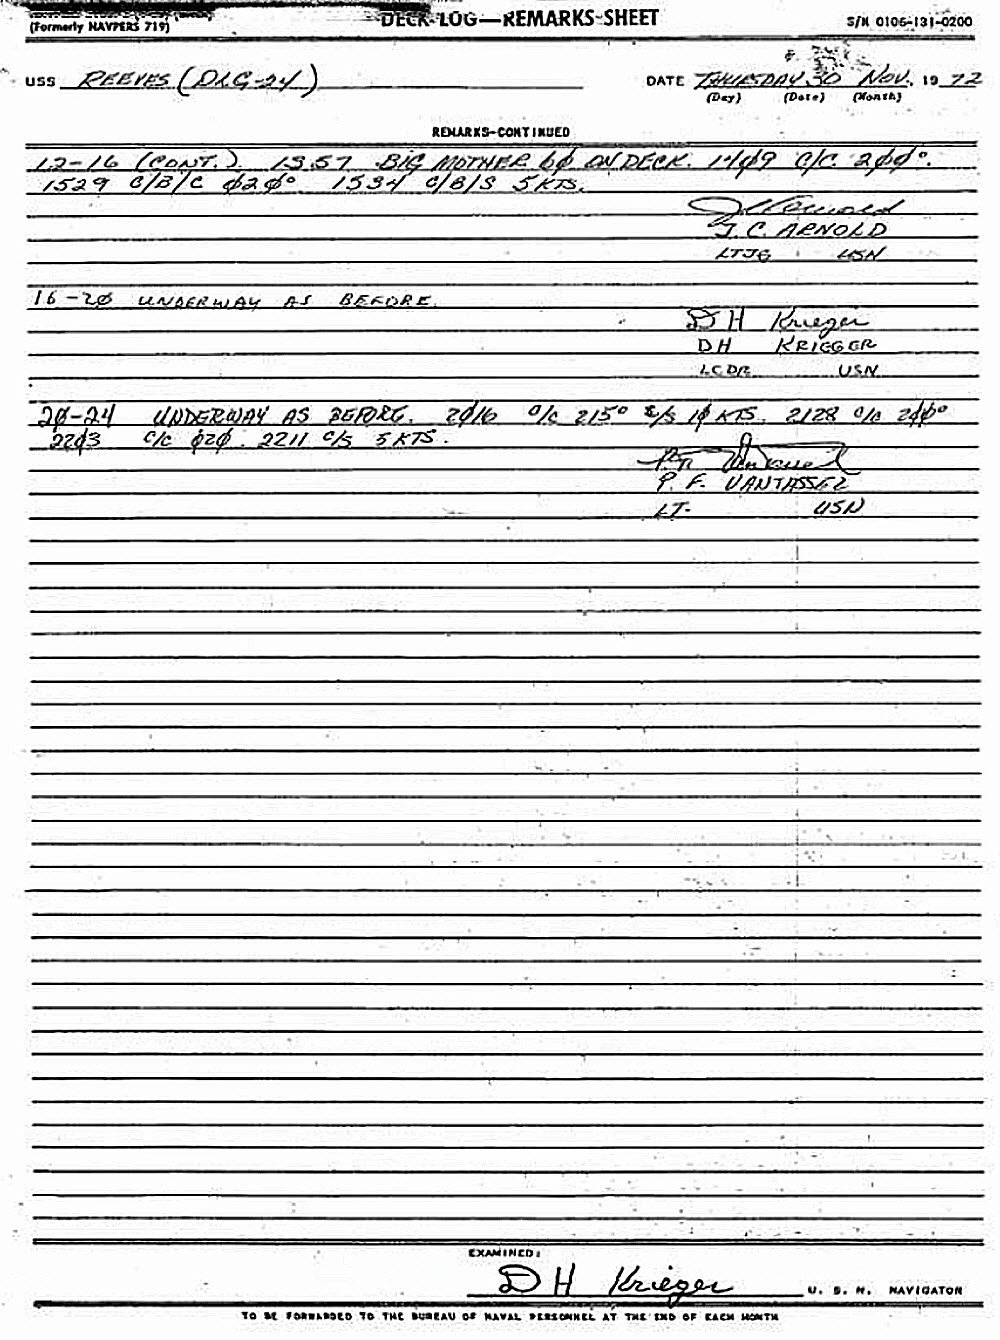 DECK LOG—REMARKS SHEET
(Formerly NAVPERS 719)
S/N 0106-131-0200
USS REEVES (DLG-24) DATE THURSDAY 30 NOV. 19 72
(Day) (Date) (Month)
REMARKS-CONTINUED
12-16 (CONT.). 1357 BIG MOTHER 6Ø ON DECK. 14Ø9 C/C 2ØØ°.
1529 C/B/C Ø2Ø° 1534 C/B/S 5 KTS.
J C Arnold
J. C. ARNOLD
LTJG USN
16-2Ø UNDERWAY AS BEFORE.
D H Krieger
DH KRIEGER
LCDR USN
2Ø-24 UNDERWAY AS BEFORE. 2Ø16 C/C 215° C/S 1Ø KTS. 2128 C/C 2ØØ°
22Ø3 C/C Ø2Ø. 2211 C/S 5 KTS.
P. F. VANTASSEL
LT. USN
EXAMINED:
D H Krieger U. S. N. NAVIGATOR
TO BE FORWARDED TO THE BUREAU OF NAVAL PERSONNEL AT THE END OF EACH MONTH